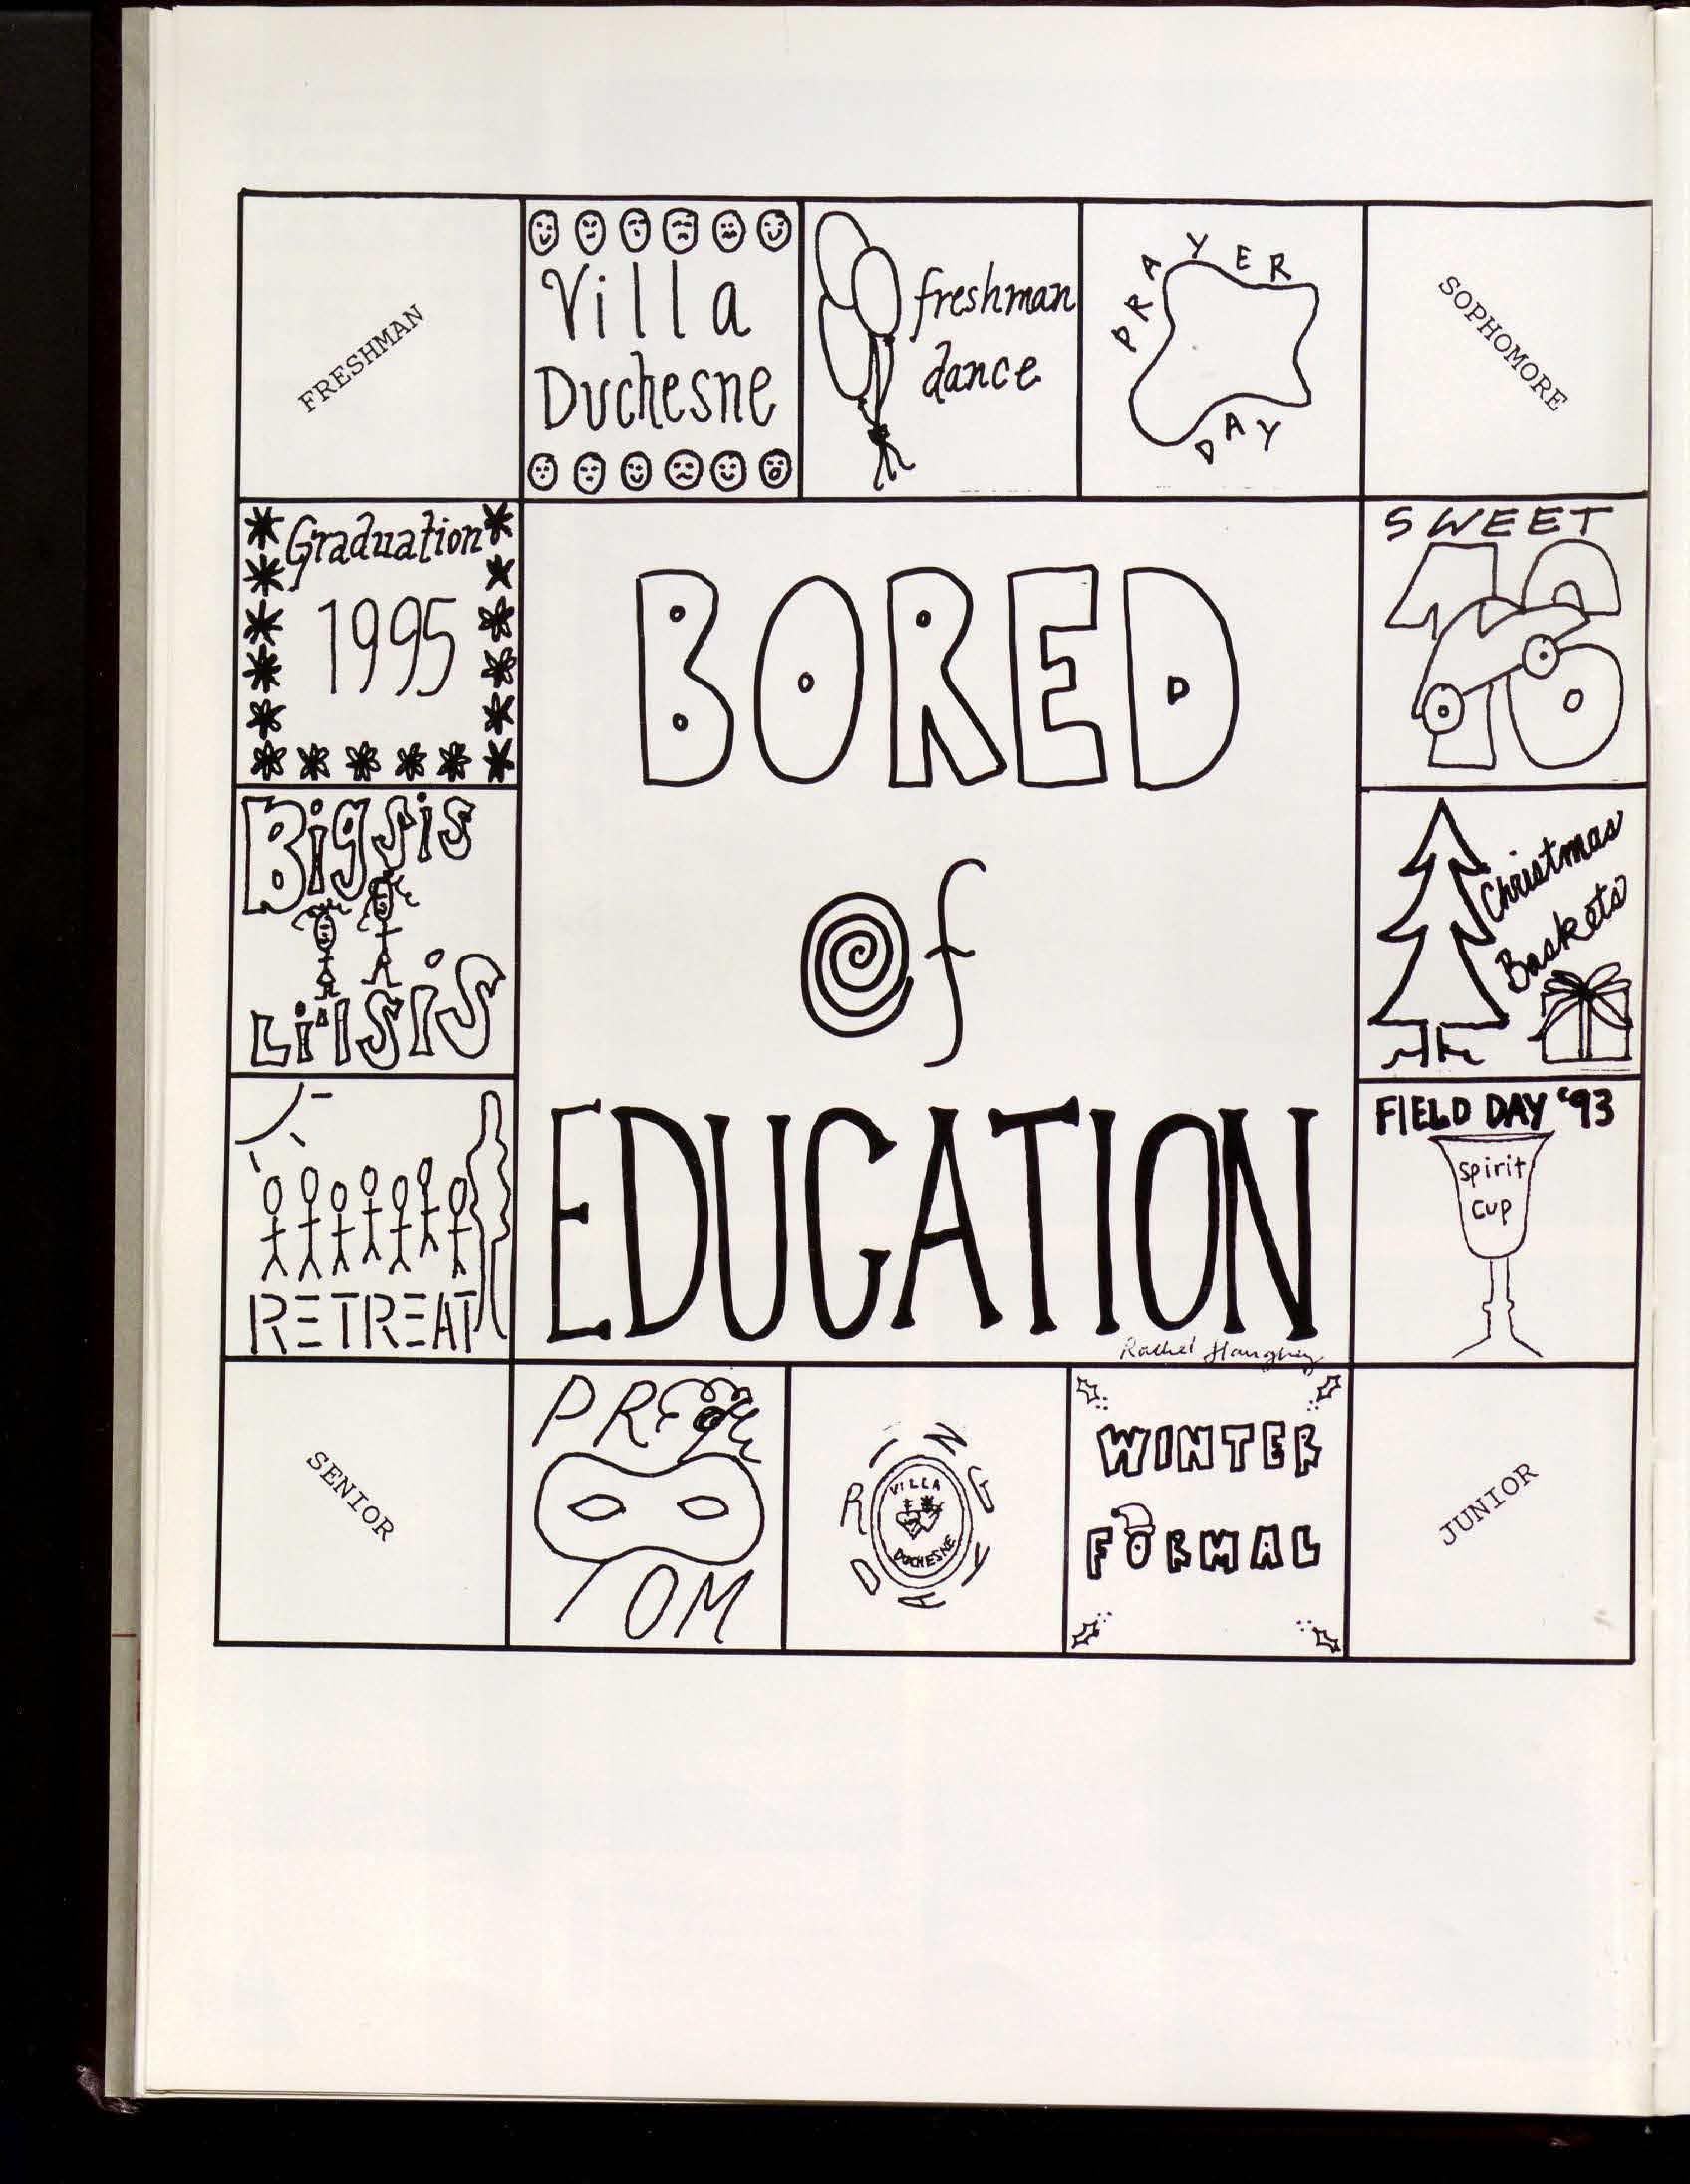 FRESHMAN
Villa
Duchesne
freshman
dance
PRAYER
DAY
SOPHOMORE
Graduation
1995
SWEET
16
Big sis
Li'l sis
Christmas
Baskets
RETREAT
FIELD DAY '93
Spirit
Cup
BORED
of
EDUCATION
SENIOR
PROM
RING
DAY
VILLA
DUCHESNE
WINTER
FORMAL
JUNIOR